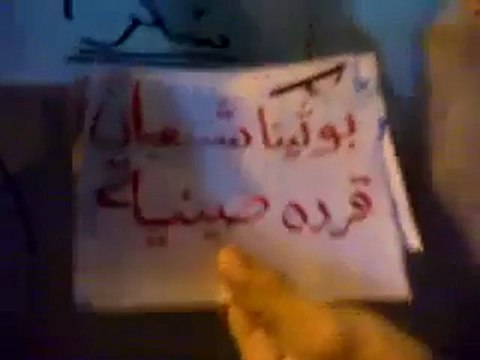 بوثينا شعبان
قرده صينية